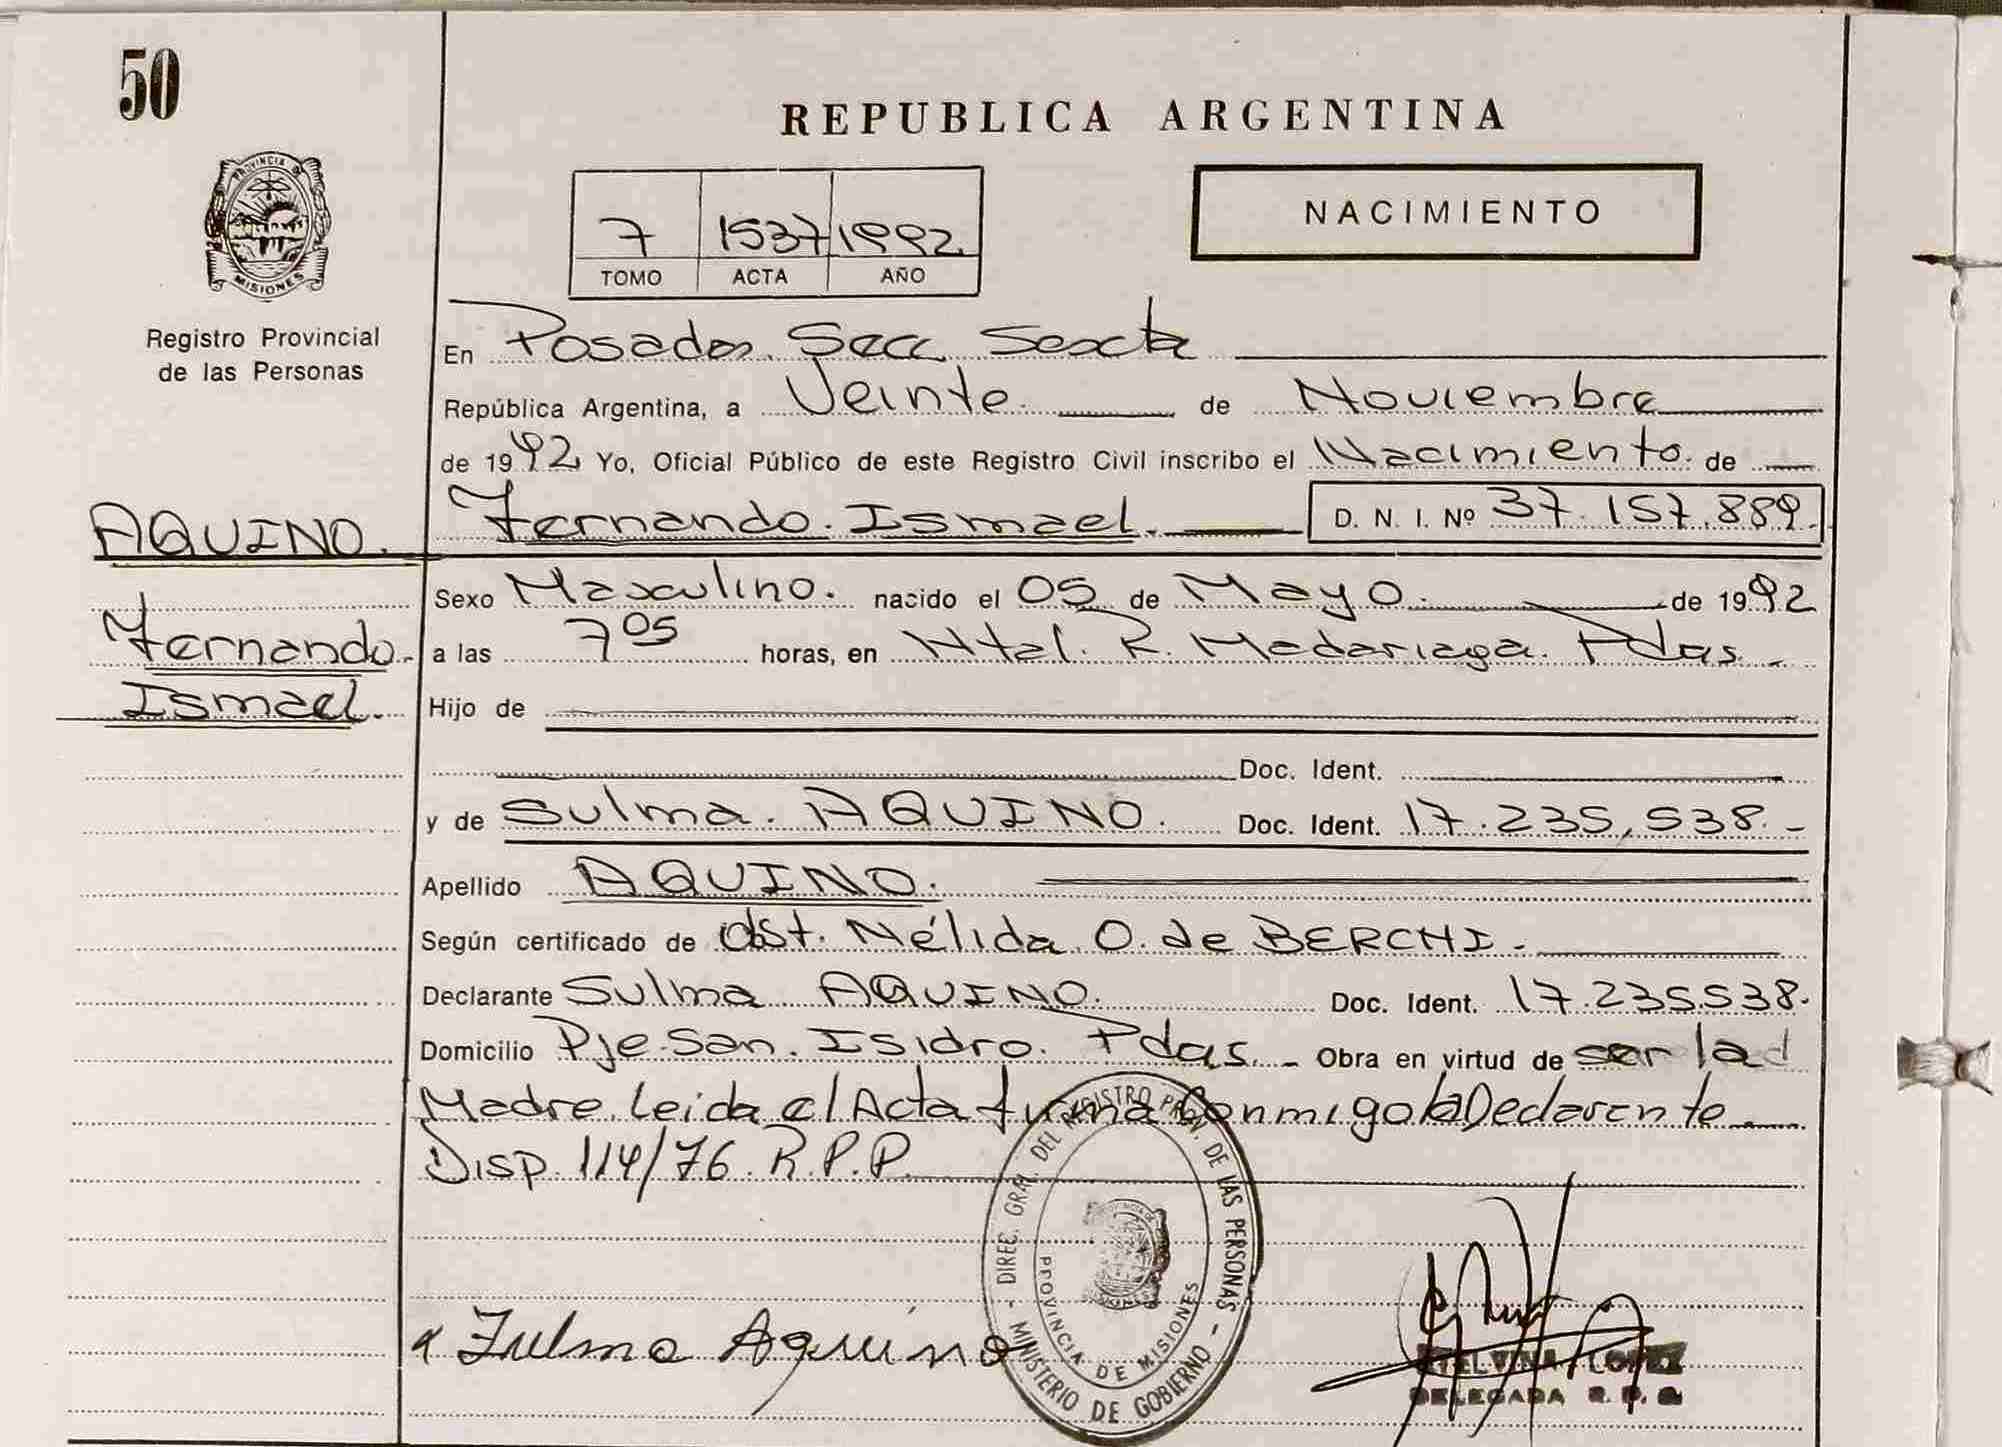 50
PROVINCIA DE
MISIONES
Registro Provincial
de las Personas
REPUBLICA ARGENTINA
7 1537 1992
TOMO ACTA AÑO
NACIMIENTO
En Posadas. Secc. Sexta
República Argentina, a Veinte. de Noviembre
de 1992 Yo, Oficial Público de este Registro Civil inscribo el Nacimiento. de
AQUINO. Fernando. Ismael. D. N. I. Nº 37.157.889.
Fernando.
Ismael.
Sexo Masculino. nacido el 05 de Mayo. de 1992
a las 7 05 horas, en Htal. R. Madariaga. Pdas.
Hijo de
Doc. Ident.
y de Sulma. AQUINO. Doc. Ident. 17.235,538.-
Apellido AQUINO.
Según certificado de obst. Nélida O. de BERCHI.
Declarante Sulma AQUINO. Doc. Ident. 17.235.538.
Domicilio Pje San. Isidro. Pdas. - Obra en virtud de ser la
Madre. Leida el Acta firma Conmigo la Declarante
Disp. 114/76. R.P.P.
- DIREC. GRAL. DEL REGISTRO PROV. DE LAS PERSONAS -
MINISTERIO DE GOBIERNO
PROVINCIA DE MISIONES
Zulma Aquino
LOPEZ
DELEGADA